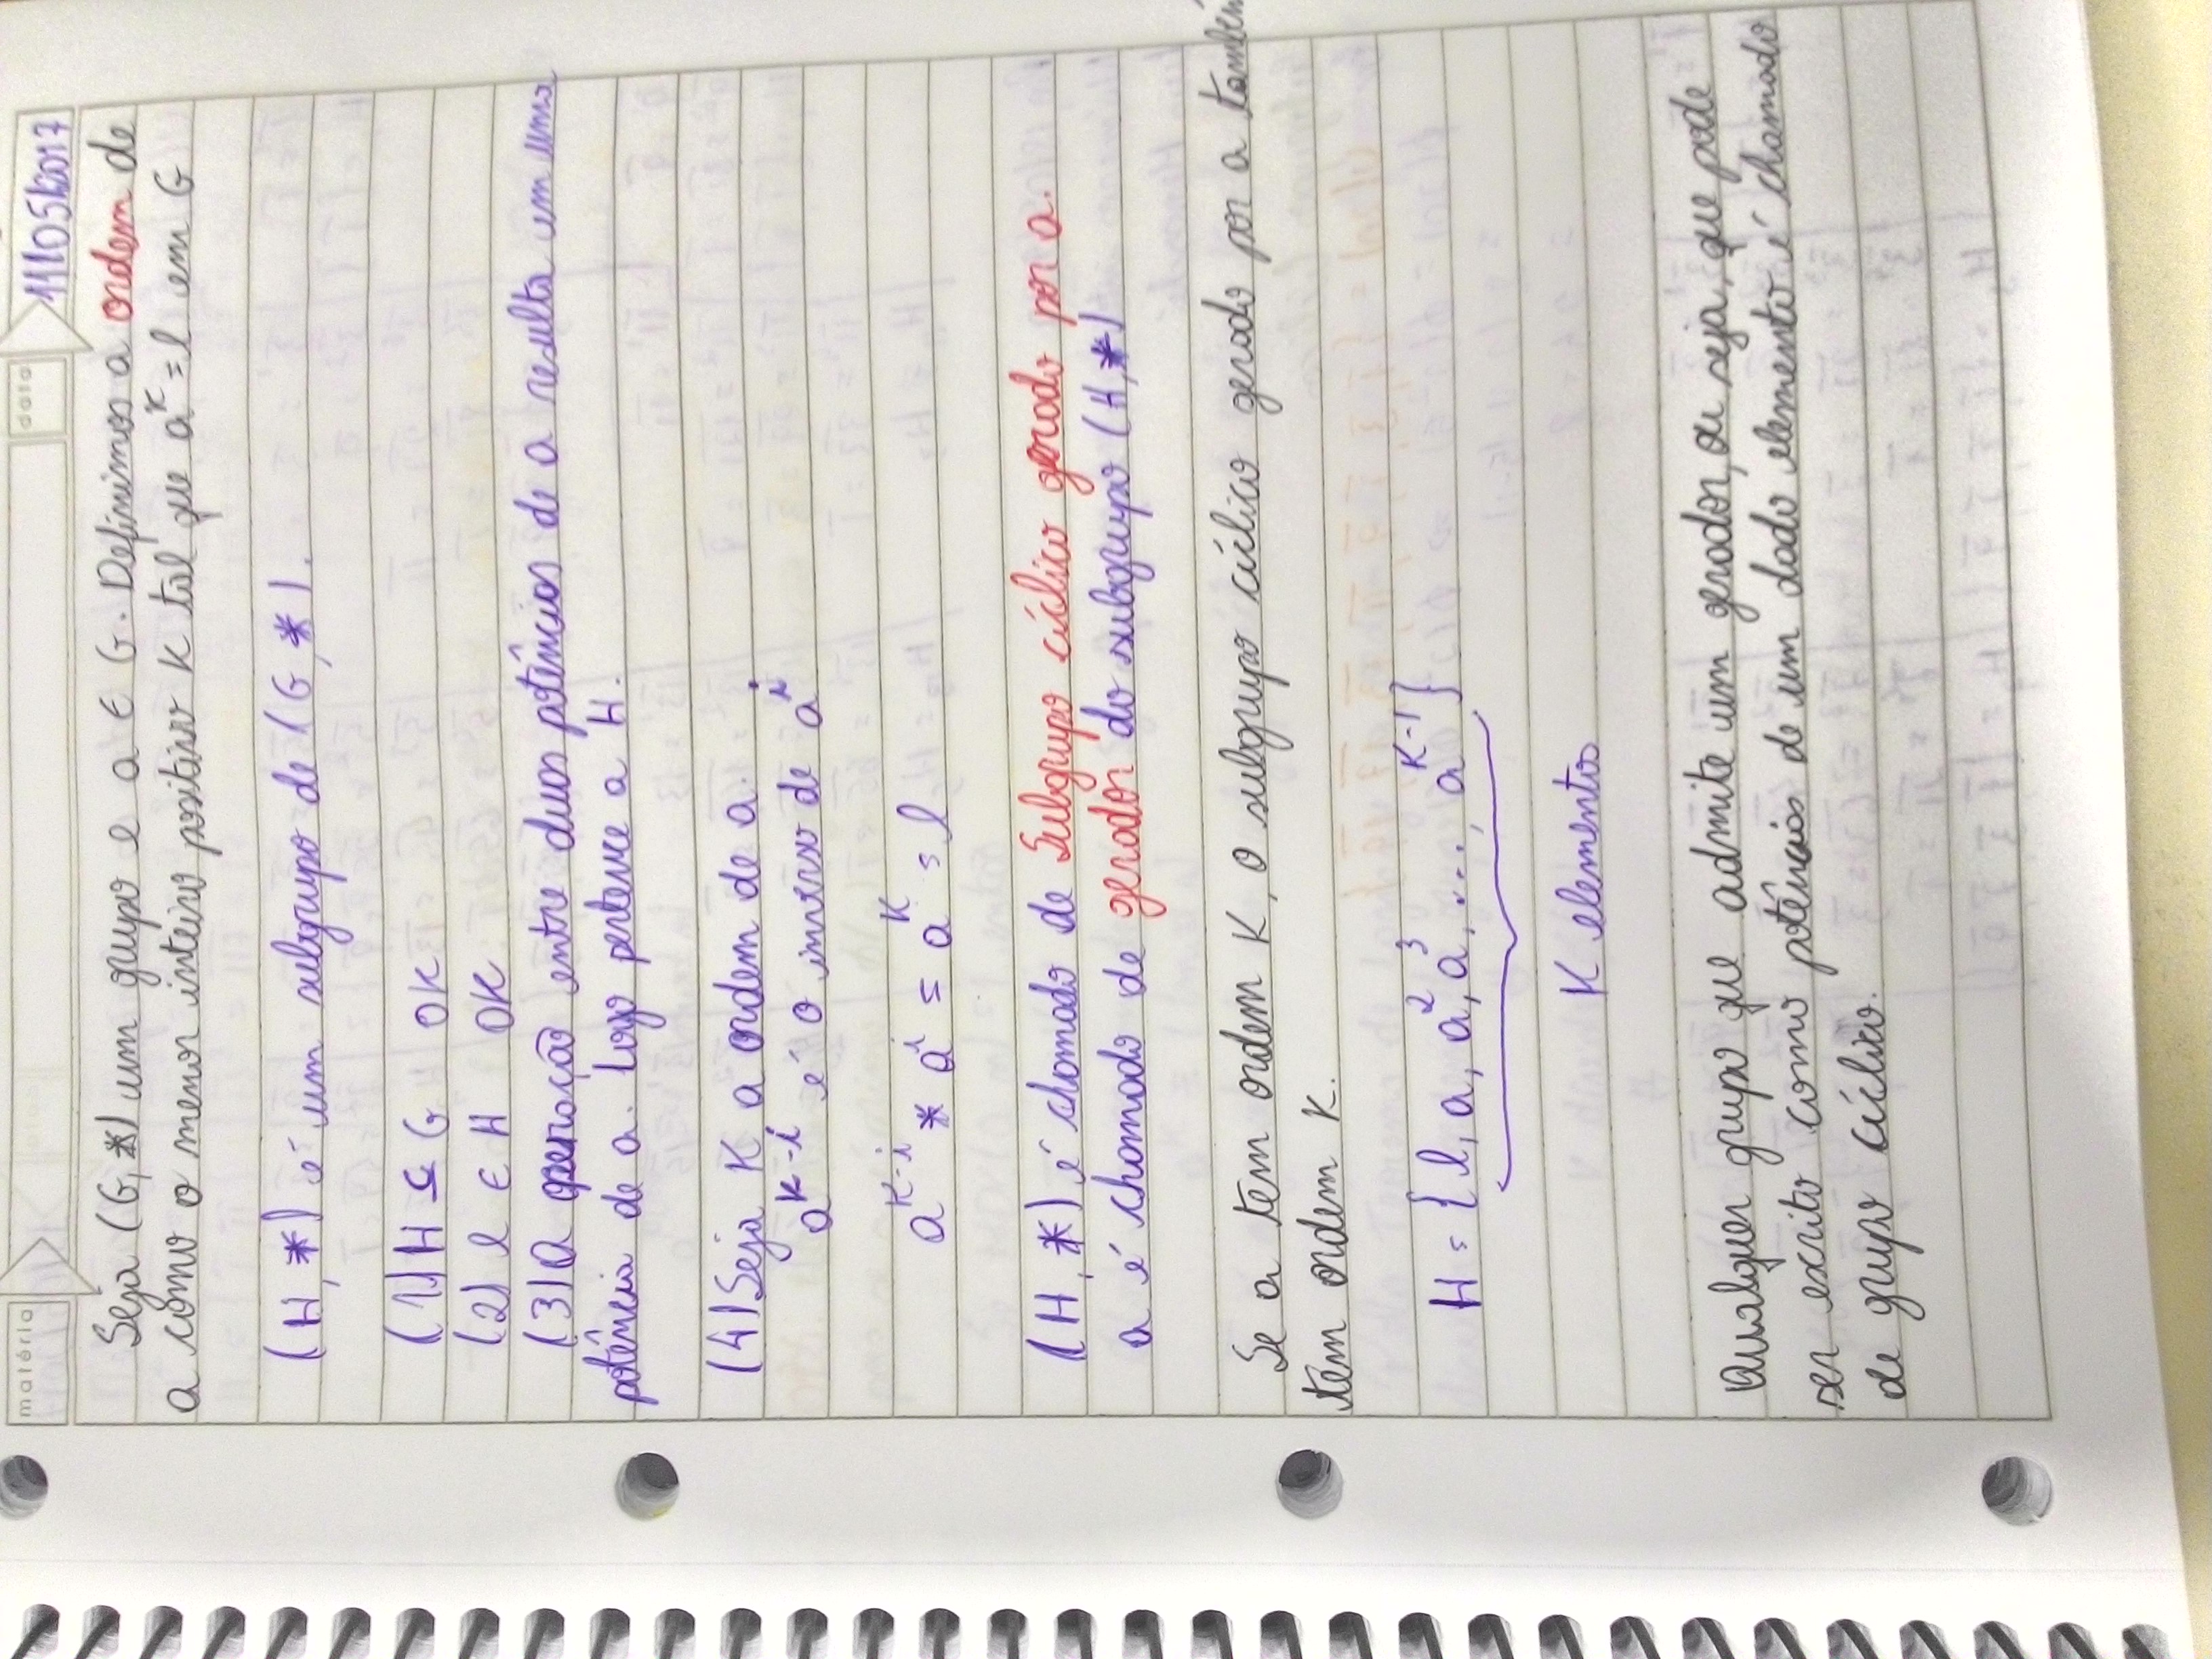 matéria data 11/05/2017
Seja (G, *) um grupo e a ∈ G. Definimos a ordem de
a como o menor inteiro positivo K tal que a^K = e em G
(H, *) é um subgrupo de (G, *).
(1) H ⊆ G OK
(2) e ∈ H OK
(3) A operação entre duas potências de a resulta em uma
potência de a. Logo pertence a H.
(4) Seja K a ordem de a.
a^(K-i) é o inverso de a^i
a^(K-i) * a^i = a^K = e
(H, *) é chamado de Subgrupo cíclico gerado por a.
a é chamado de gerador do subgrupo (H, *)
Se a tem ordem K, o subgrupo cíclico gerado por a também
tem ordem K.
H = {e, a, a², a³, ..., a^(K-1)}
K elementos
Qualquer grupo que admite um gerador, ou seja, que pode
ser escrito como potências de um dado elemento é chamado
de grupo cíclico.